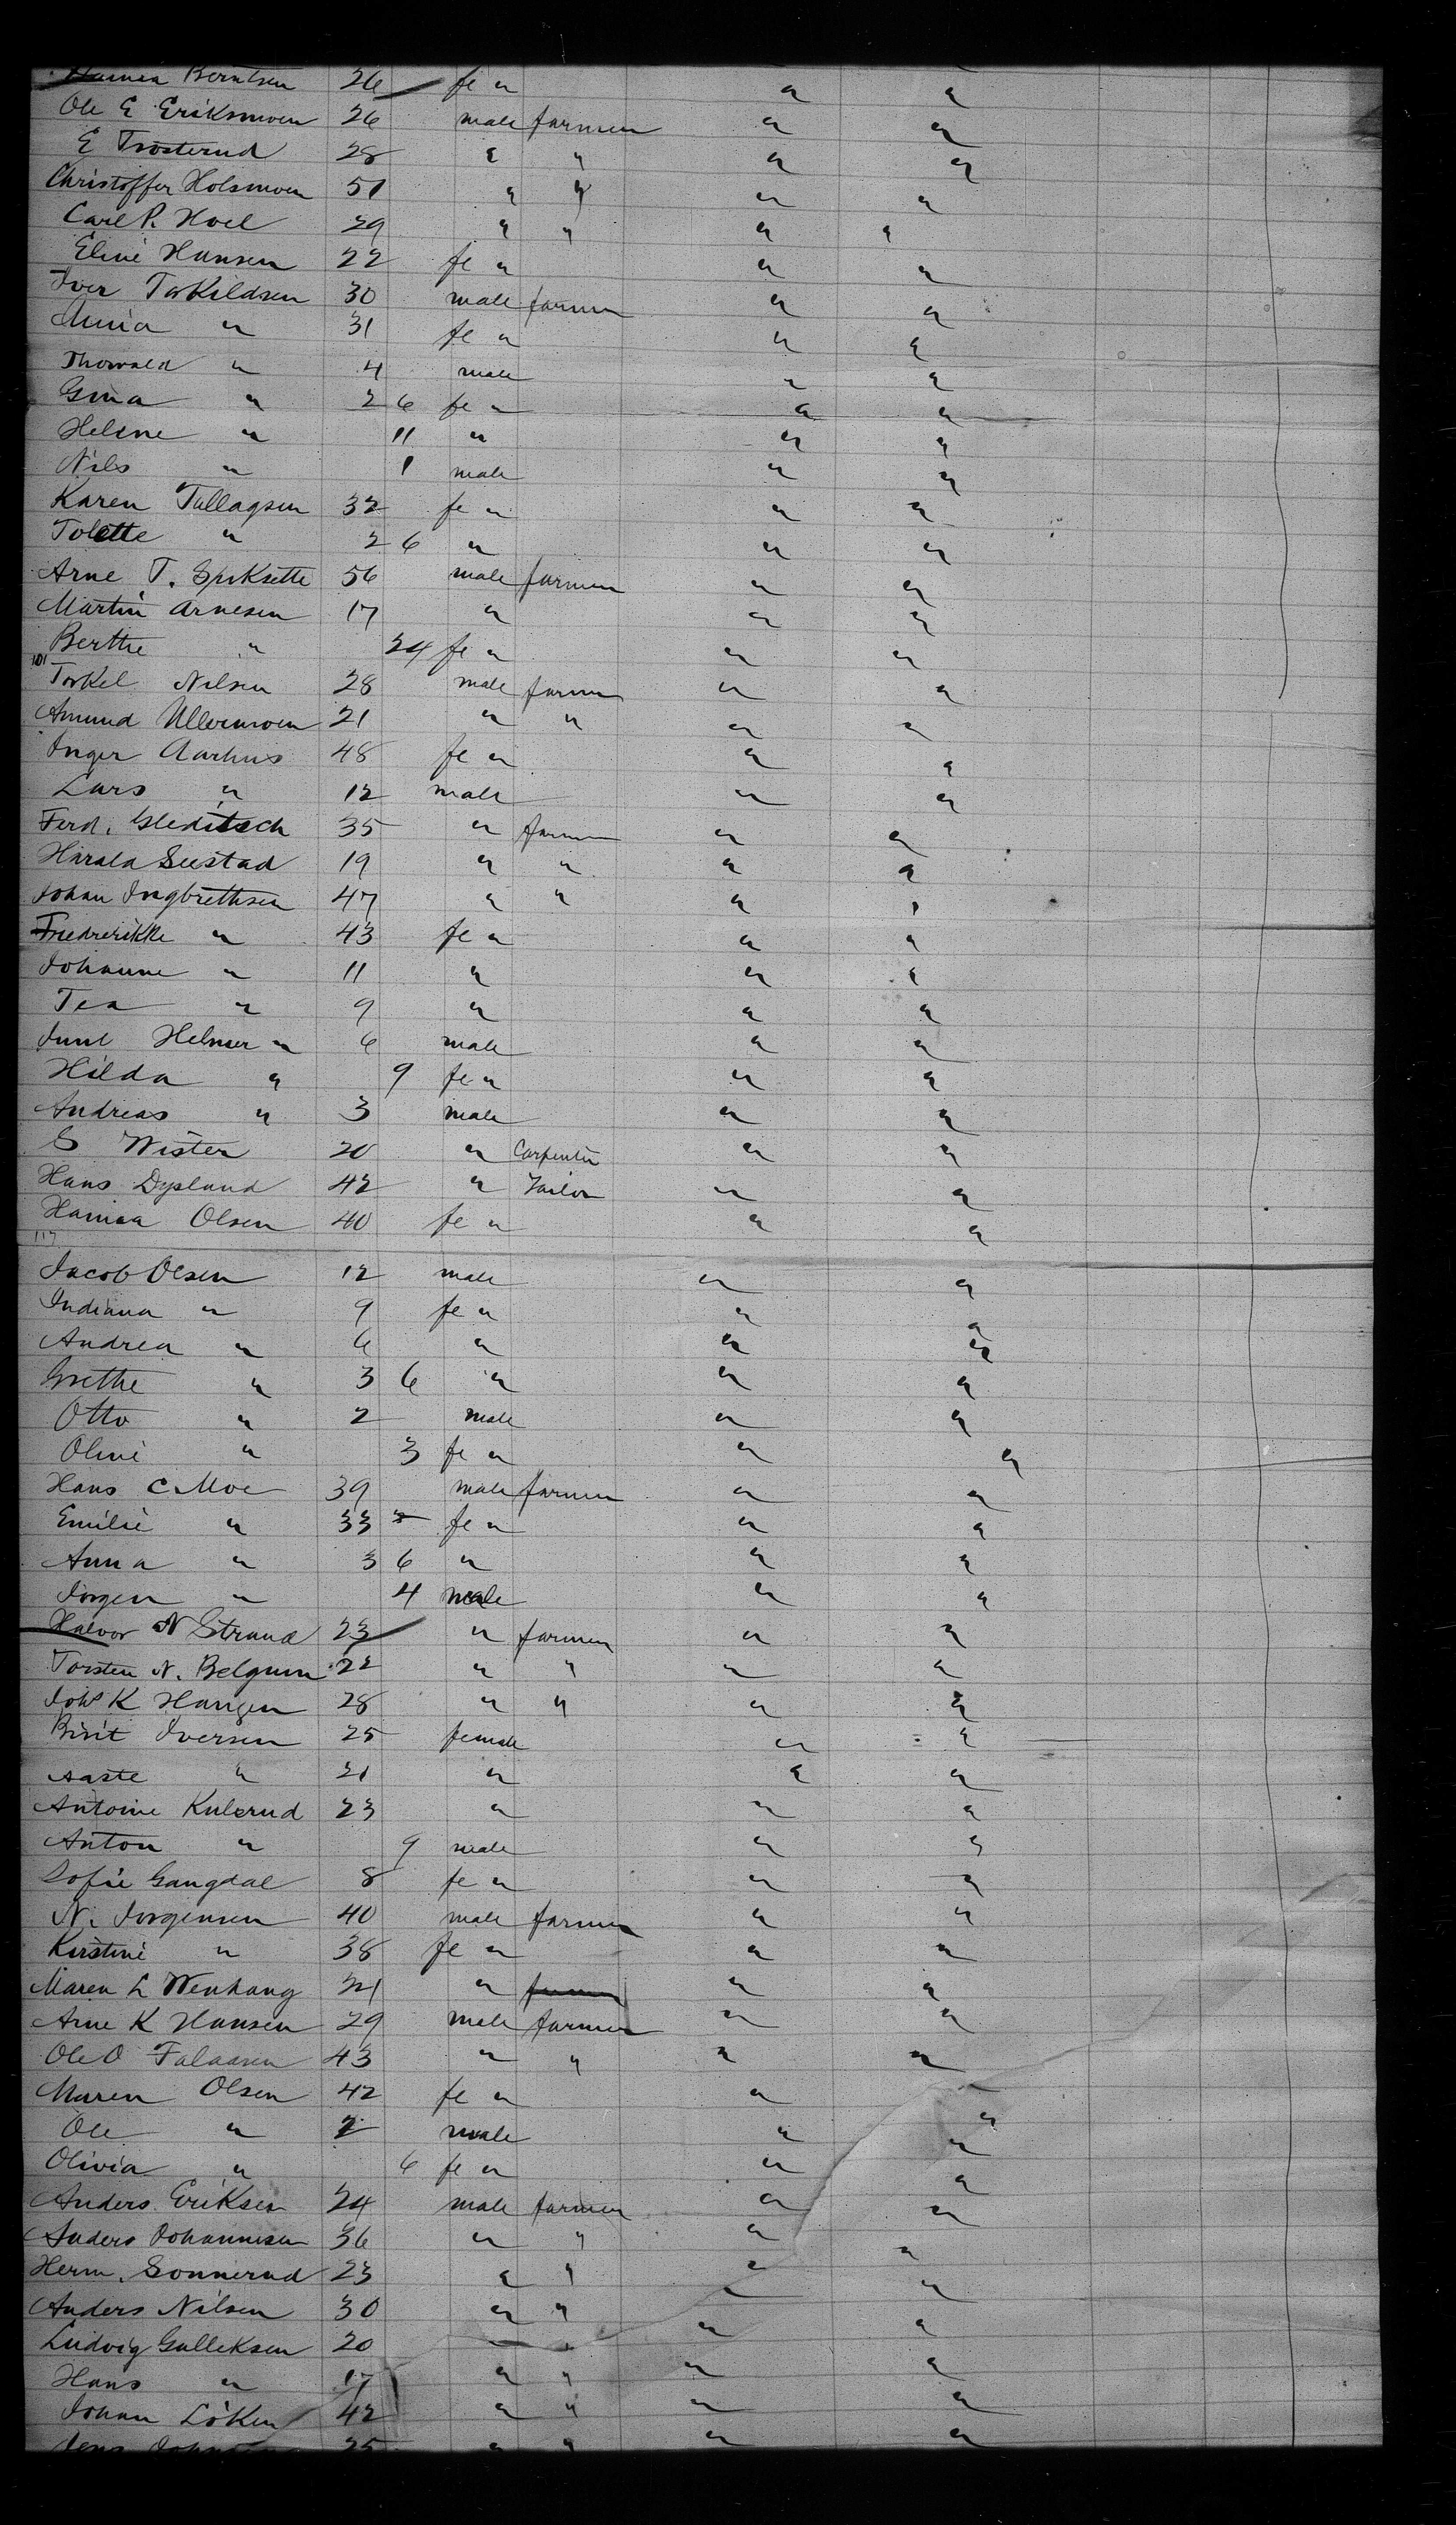 Berntsen 26 fe " " "
Ole E Eriksmoen 26 male farmer " "
E Trosterud 28 " " " "
Christoffer Holsmoen 51 " " " "
Carl P. Hoel 29 " " " "
Eline Hansen 22 fe " " "
Iver Torkildsen 30 male farmer " "
Anna " 31 fe " " "
Thorvald " 4 male " "
Gina " 2 6 fe " " "
Helene " 11 " " "
Nils " 1 male " "
Karen Tallagsen 32 fe " " "
Tolette " 2 6 " " "
Arne T. 56 male farmer " "
Martin Arnesen 17 " " "
Berthe " 24 fe " " "
101
Torkel Nilsen 28 male farmer " "
Amund Ullernmoen 21 " " " "
Inger Aarhus 48 fe " " "
Lars " 12 male " "
Ferd. Gleditsch 35 " farmer " "
Harald Seestad 19 " " " "
Johan Ingbrethsen 47 " " " "
Fredrerikke " 43 fe " " "
Johanne " 11 " " "
Tea " 9 " " "
Helmer " 6 male " "
Hilda " 9 fe " " "
Andreas " 3 male " "
S Wister 20 " Carpenter " "
Hans Dysland 42 " Tailor " "
Olsen 40 fe " " "
117
Jacob Olsen 12 male " "
Indiana " 9 fe " " "
Andrea " 6 " " "
Grethe " 3 6 " " "
Otto " 2 male " "
Oline " 3 fe " " "
Hans C Moe 39 male farmer " "
Emilie " 33 fe " " "
Anna " 3 6 " " "
Jorgen " 4 male " "
Halvor N Strand 23 " farmer " "
Torsten N. Belgum 22 " " " "
Johs K Haugen 28 " " " "
Birit Iversen 25 female " "
Aaste " 21 " " "
Antoine Kulerud 23 " " "
Anton " 9 male " "
Sofie Gangdal 8 fe " " "
N. Jorgensen 40 male farmer " "
Kirstine " 38 fe " " "
Maren L Wenhaug 21 " farmer " "
Arne K Hansen 29 male farmer " "
Ole O Falaasen 43 " " " "
Maren Olsen 42 fe " " "
Ole " 2 male " "
Olivia " 6 fe " " "
Anders Eriksen 24 male farmer " "
Anders Johannesen 36 " " " "
Herm. Sonnerud 23 " " " "
Anders Nilsen 30 " " " "
Ludvig Gulleksen 20 " " " "
Hans " 17 " " " "
Johan Löken 42 " " " "
Jens 25 " " " "